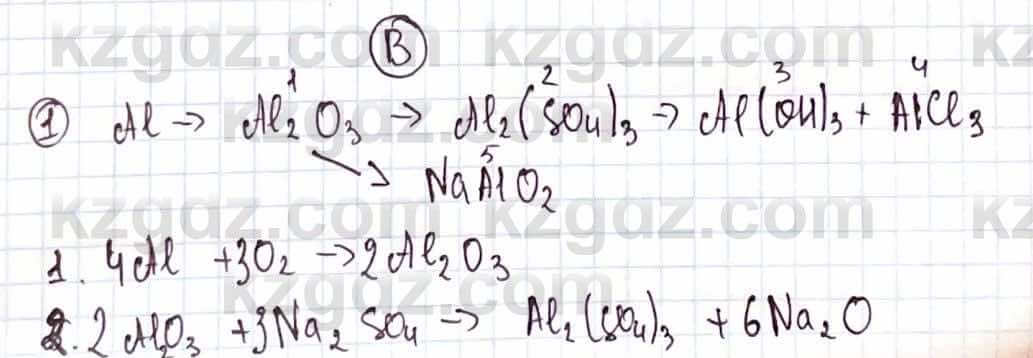 kzgdz.com kzgdz.com kz
B
1 2 3 4
① Al → Al₂O₃ → Al₂(SO₄)₃ → Al(OH)₃ + AlCl₃
5
→ NaAlO₂
kzgdz.com kzgdz.com kz
1. 4Al + 3O₂ → 2Al₂O₃
kzgdz.com
2. 2Al₂O₃ + 3Na₂SO₄ → Al₂(SO₄)₃ + 6Na₂O